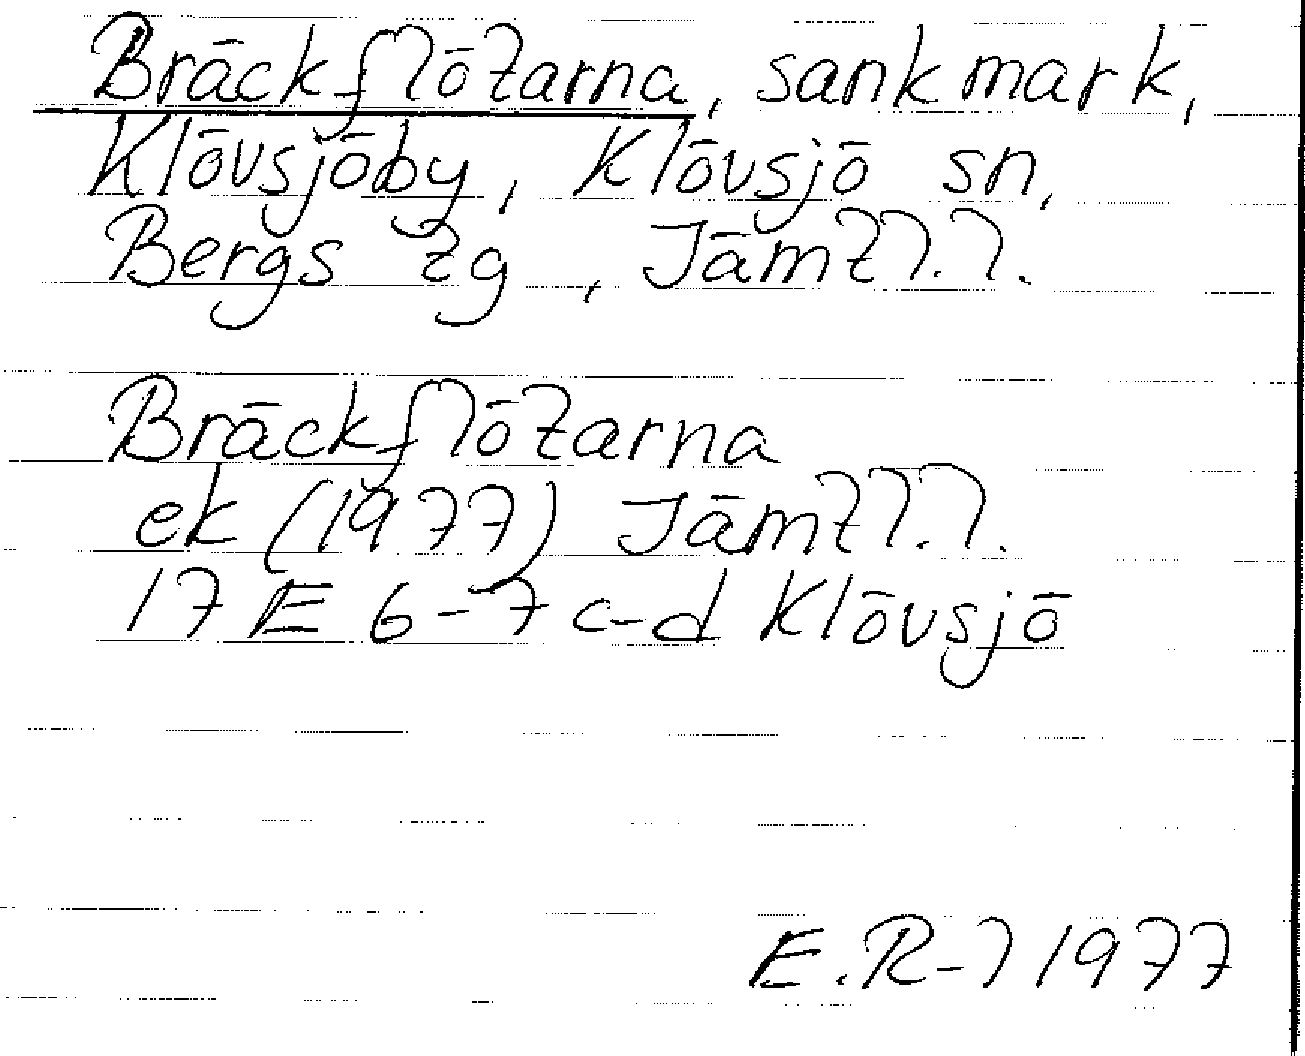 Bräckflötarna, sankmark,
Klövsjöby, Klövsjö sn,
Bergs tg, Jämtl.l.
Bräckflötarna
ek (1977) Jämtl.l.
17E 6-7 c-d Klövsjö
E.R-l 1977